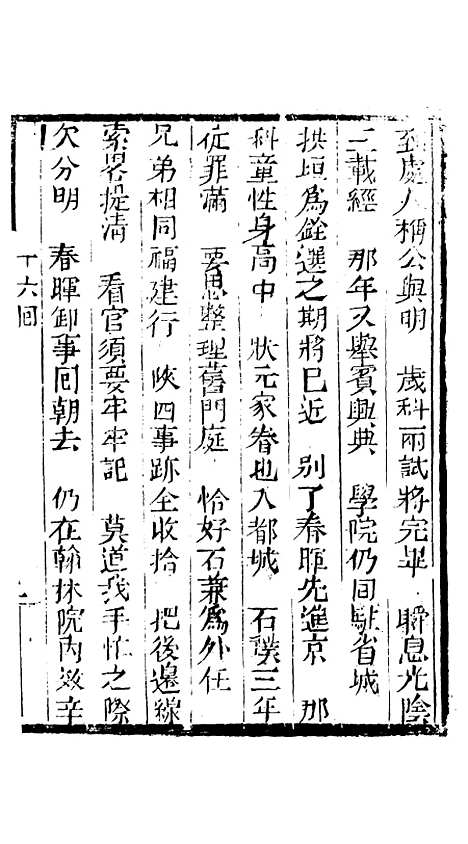 到處人稱公與明　歲科兩試將完畢　瞬息光陰
二載經　那年又舉賓興典　學院仍回駐省城
拱垣爲銓選之期將已近　別了春暉先進京　那
科童性身高中　狀元家眷也入都城　石璞三年
徒罪滿　要思整理舊門庭　恰好石兼爲外任
兄弟相同福建行　陜四事跡全收拾　把後邊線
索畧提清　看官須要牢牢記　莫道我手忙之際
欠分明　春暉卸事回朝去　仍在翰林院內效辛
十六回